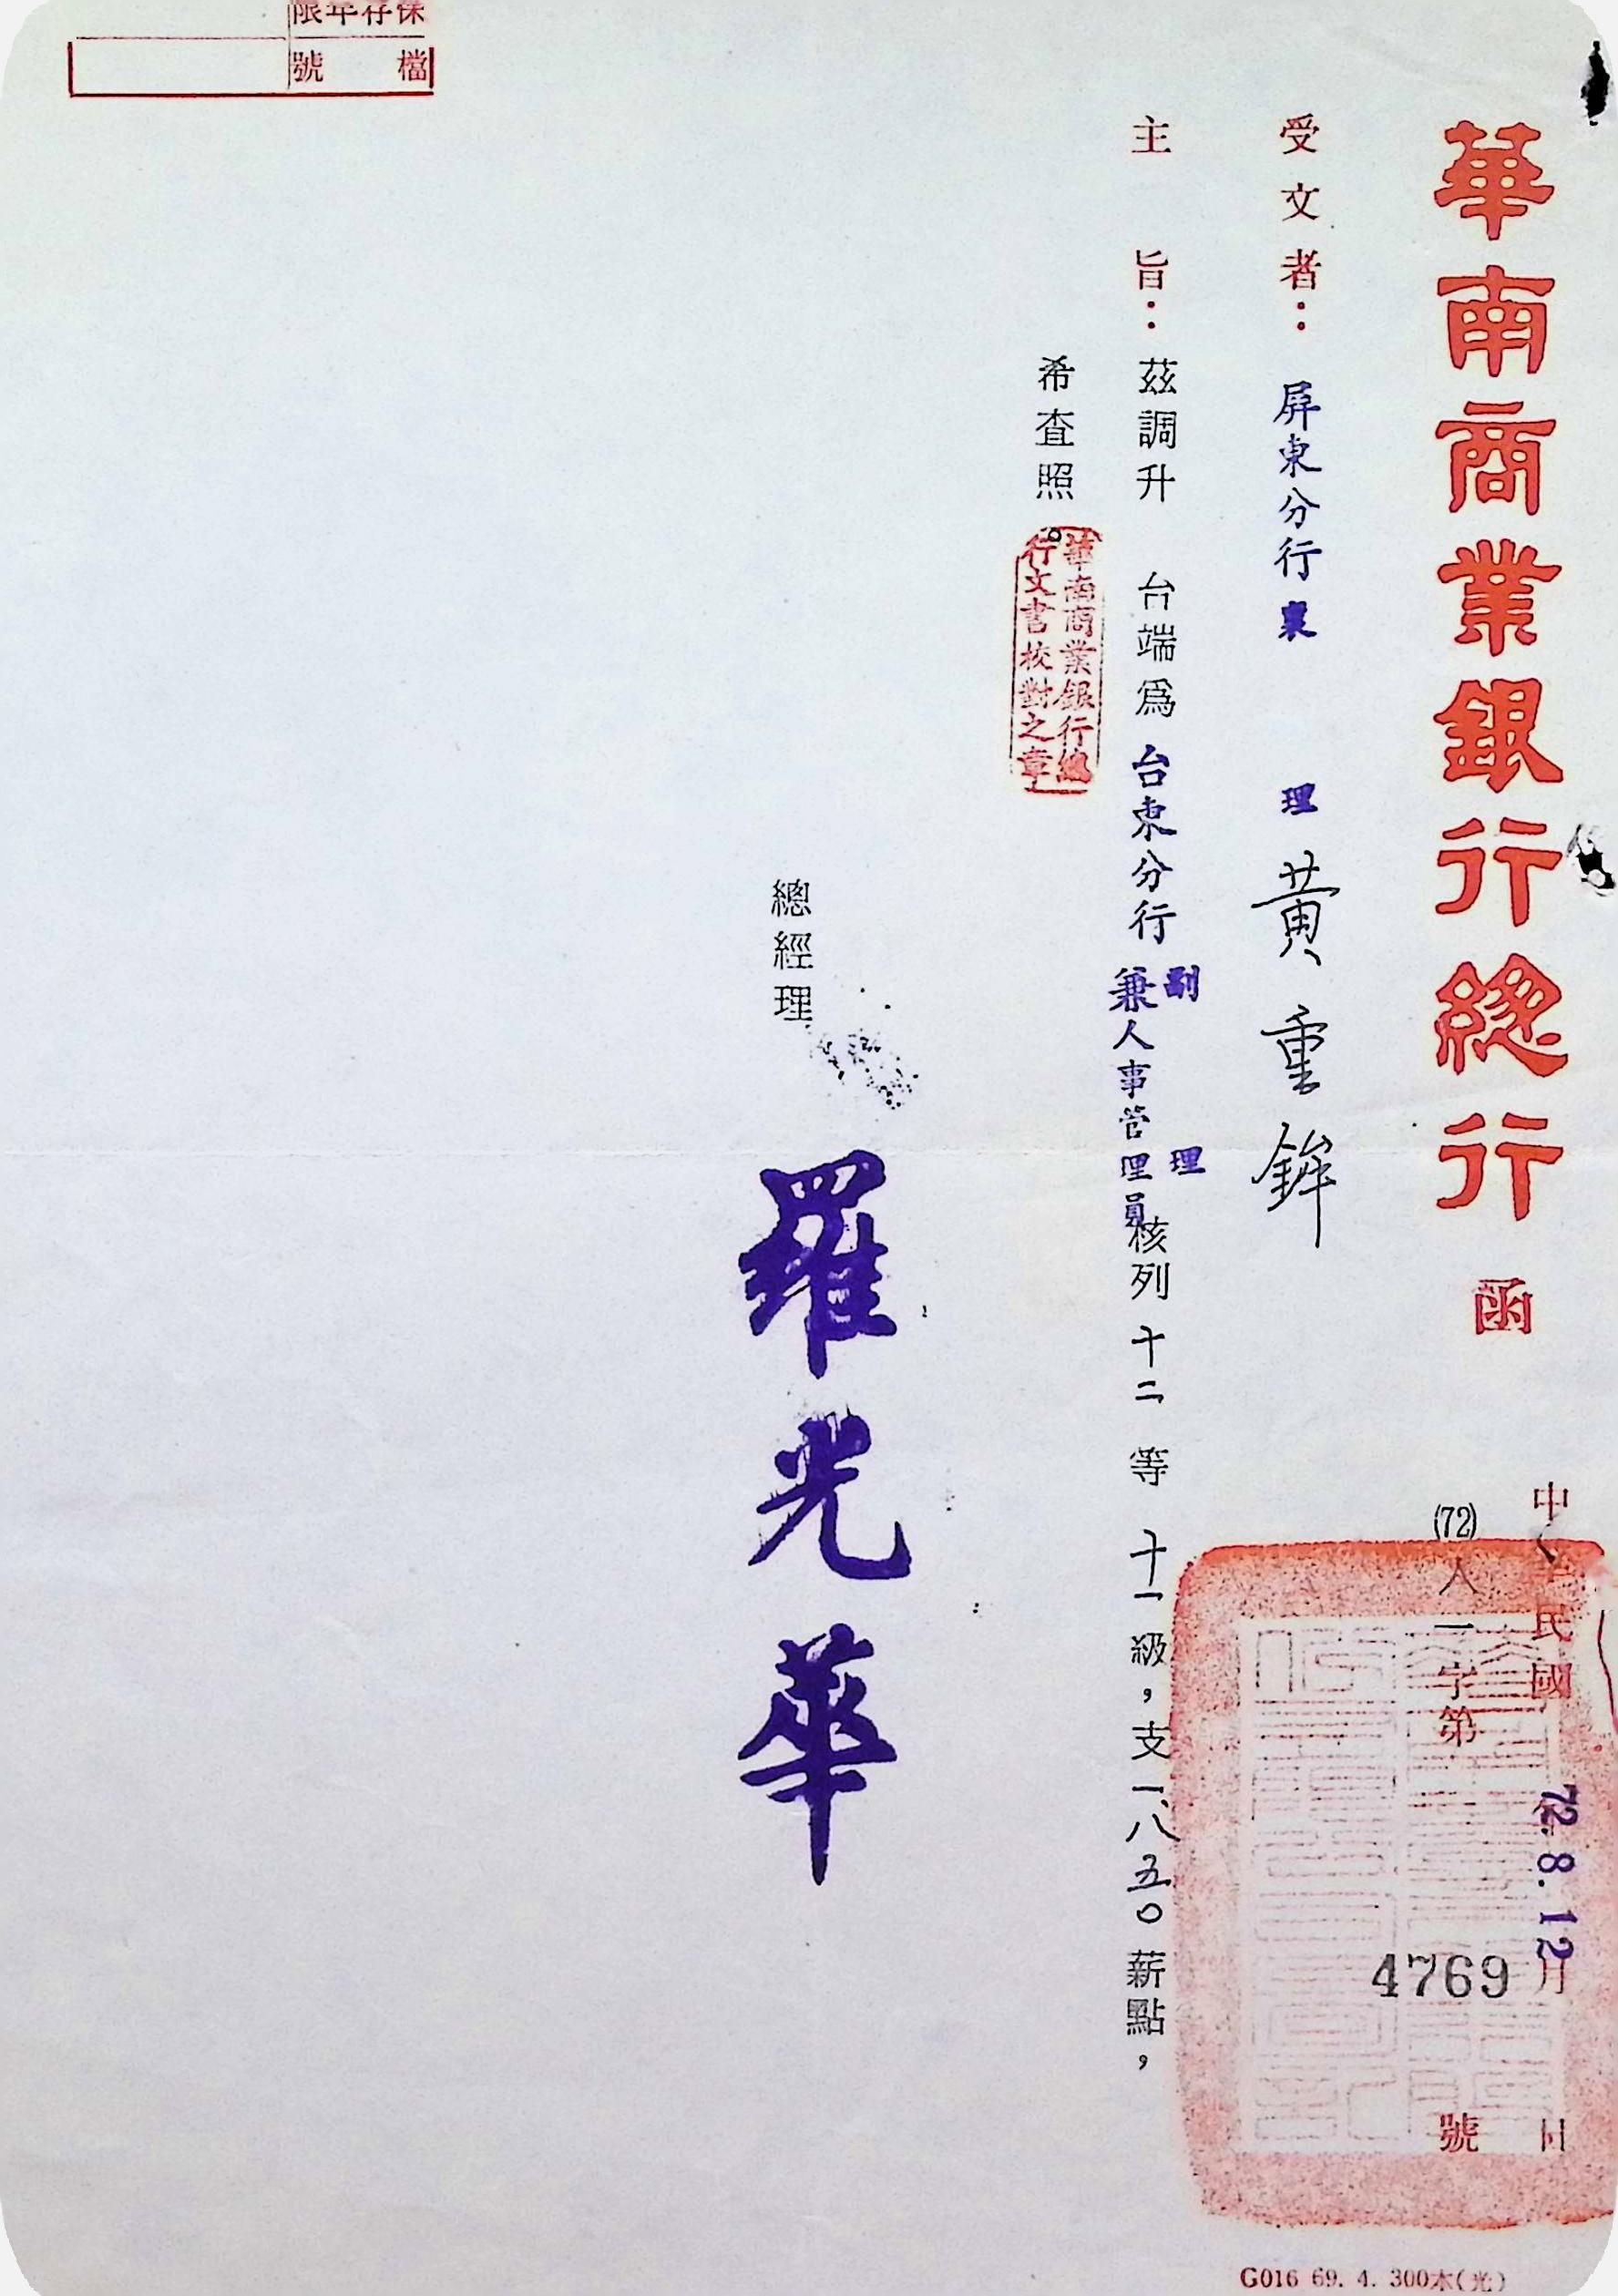 華南商業銀行總行 函
中華民國 72.8.12 月 日
(72)人一字第 4769 號
受文者：屏東分行襄理 黃重鉾
主 旨：茲調升 台端為台東分行副理
兼人事管理員核列十二等十一級，支一八五〇薪點，
希查照。
華南商業銀行總
行文書校對之章
總經理 羅光華
保存年限
檔 號
G016 69. 4. 300本(光)